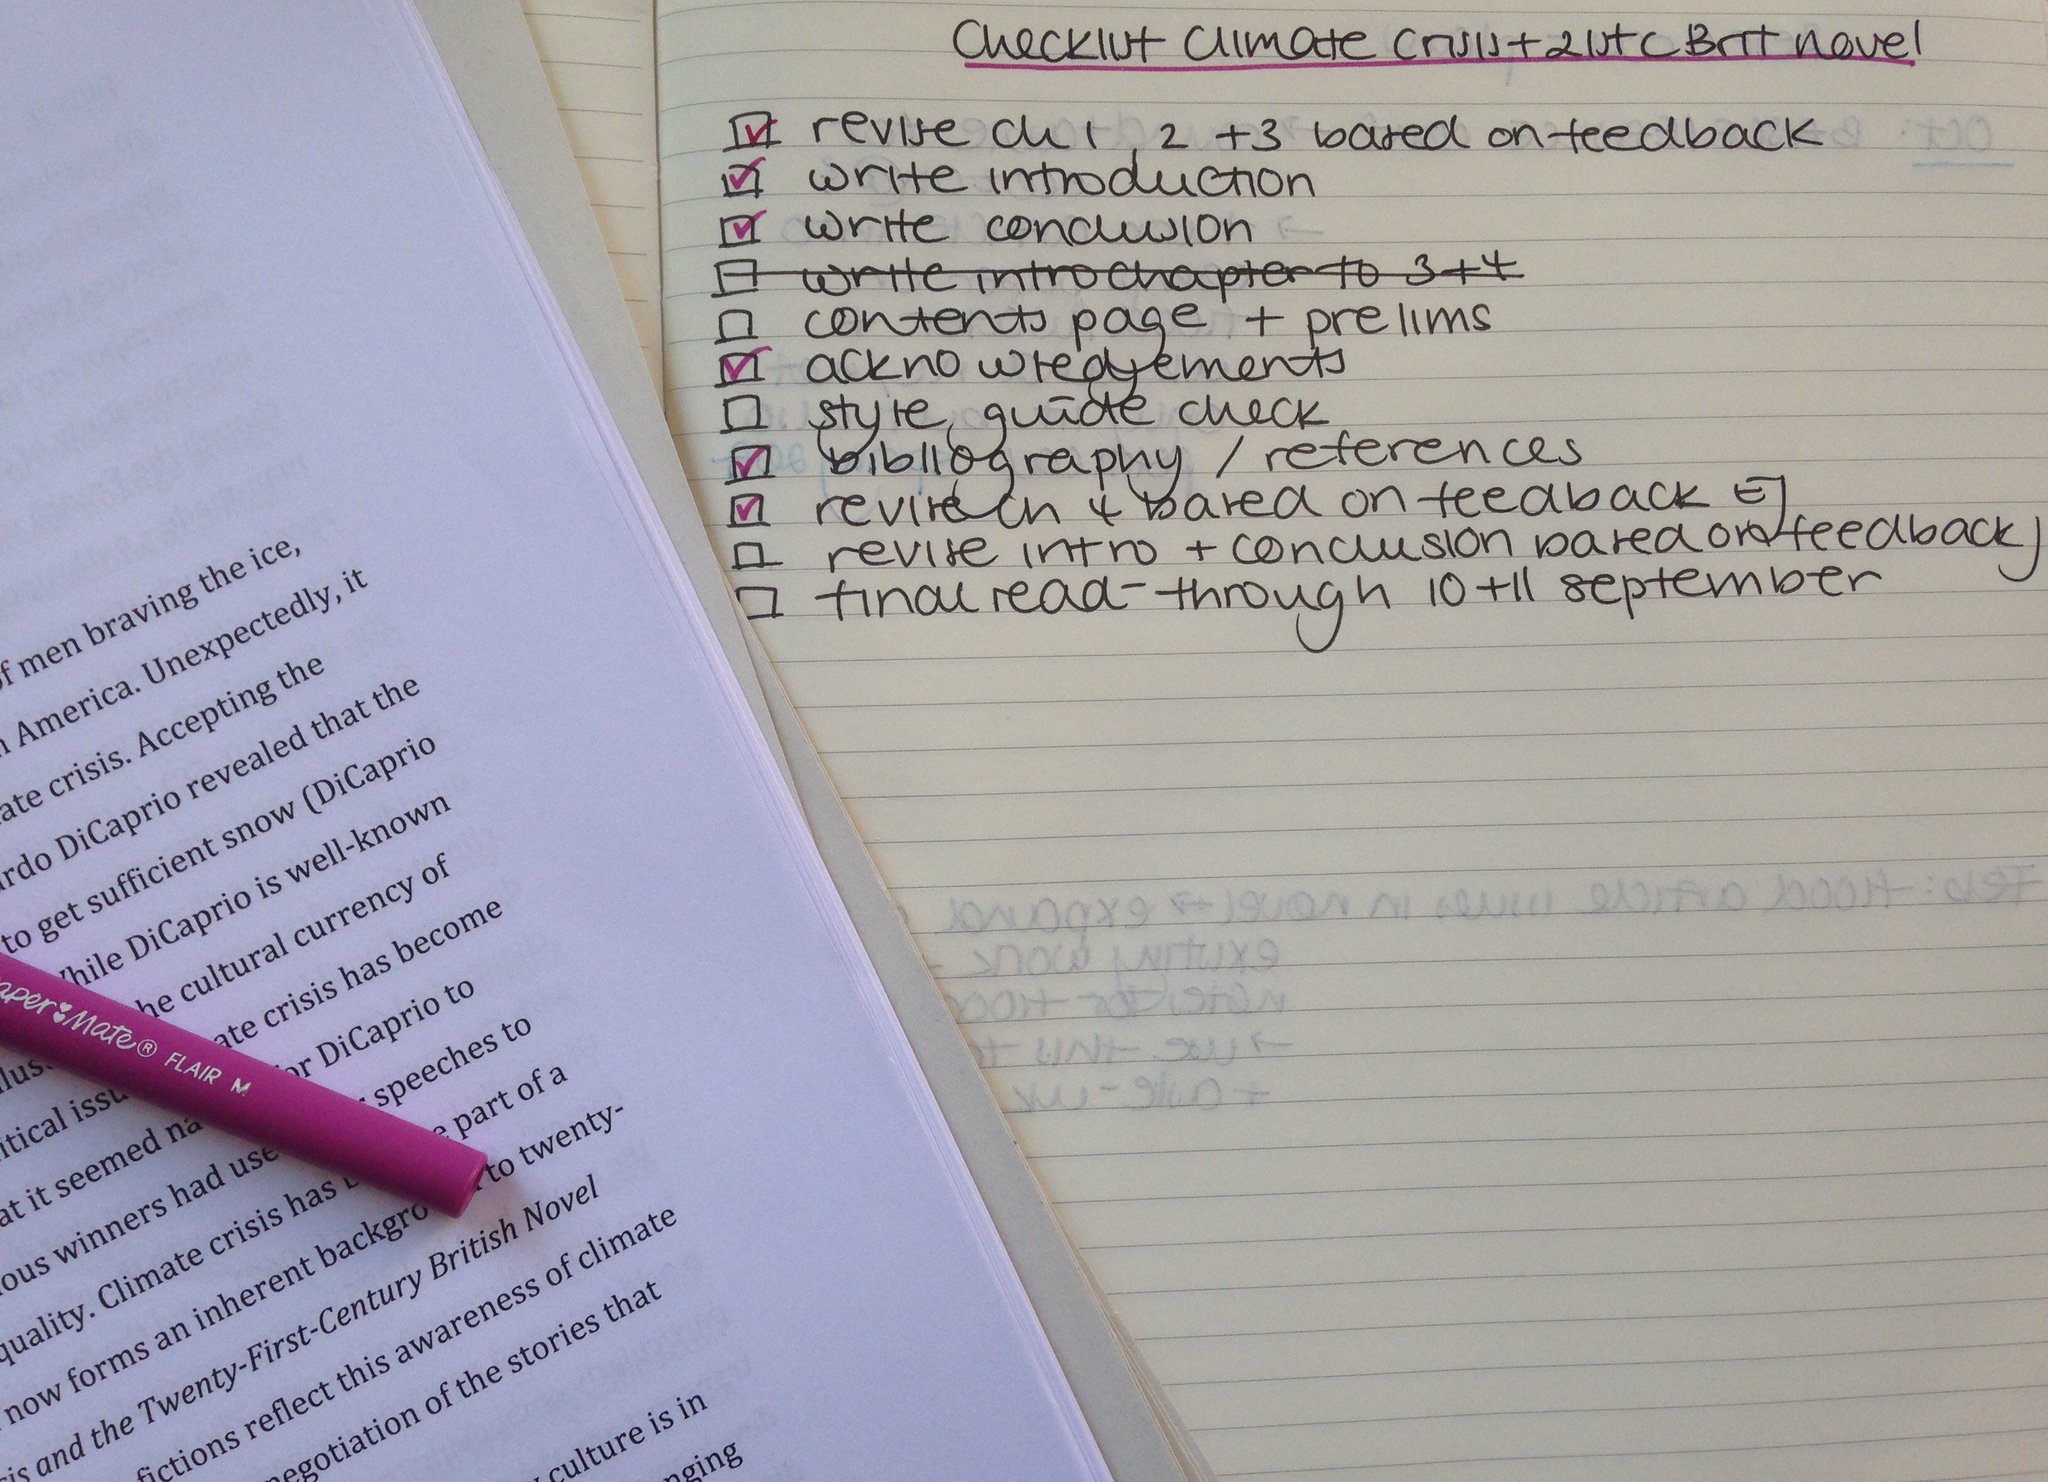 Checklist Climate Crisis + 21st C Brit novel
revise ch 1, 2 + 3 based on feedback
write introduction
write conclusion
write intro chapter to 3 + 4
contents page + prelims
acknowledgements
style guide check
bibliography / references
revise ch 4 based on feedback EJ
revise intro + conclusion based on feedback J
final read-through 10 + 11 september
of men braving the ice,
America. Unexpectedly, it
ate crisis. Accepting the
rdo DiCaprio revealed that the
to get sufficient snow (DiCaprio
While DiCaprio is well-known
he cultural currency of
ate crisis has become
or DiCaprio to
itical issu speeches to
at it seemed na e part of a
ous winners had use to twenty-
quality. Climate crisis has
now forms an inherent backgro
sis and the Twenty-First-Century British Novel
fictions reflect this awareness of climate
negotiation of the stories that
culture is in
nging
Paper Mate® FLAIR M
Oct:
Feb: Hood article in novel → expand
existing work